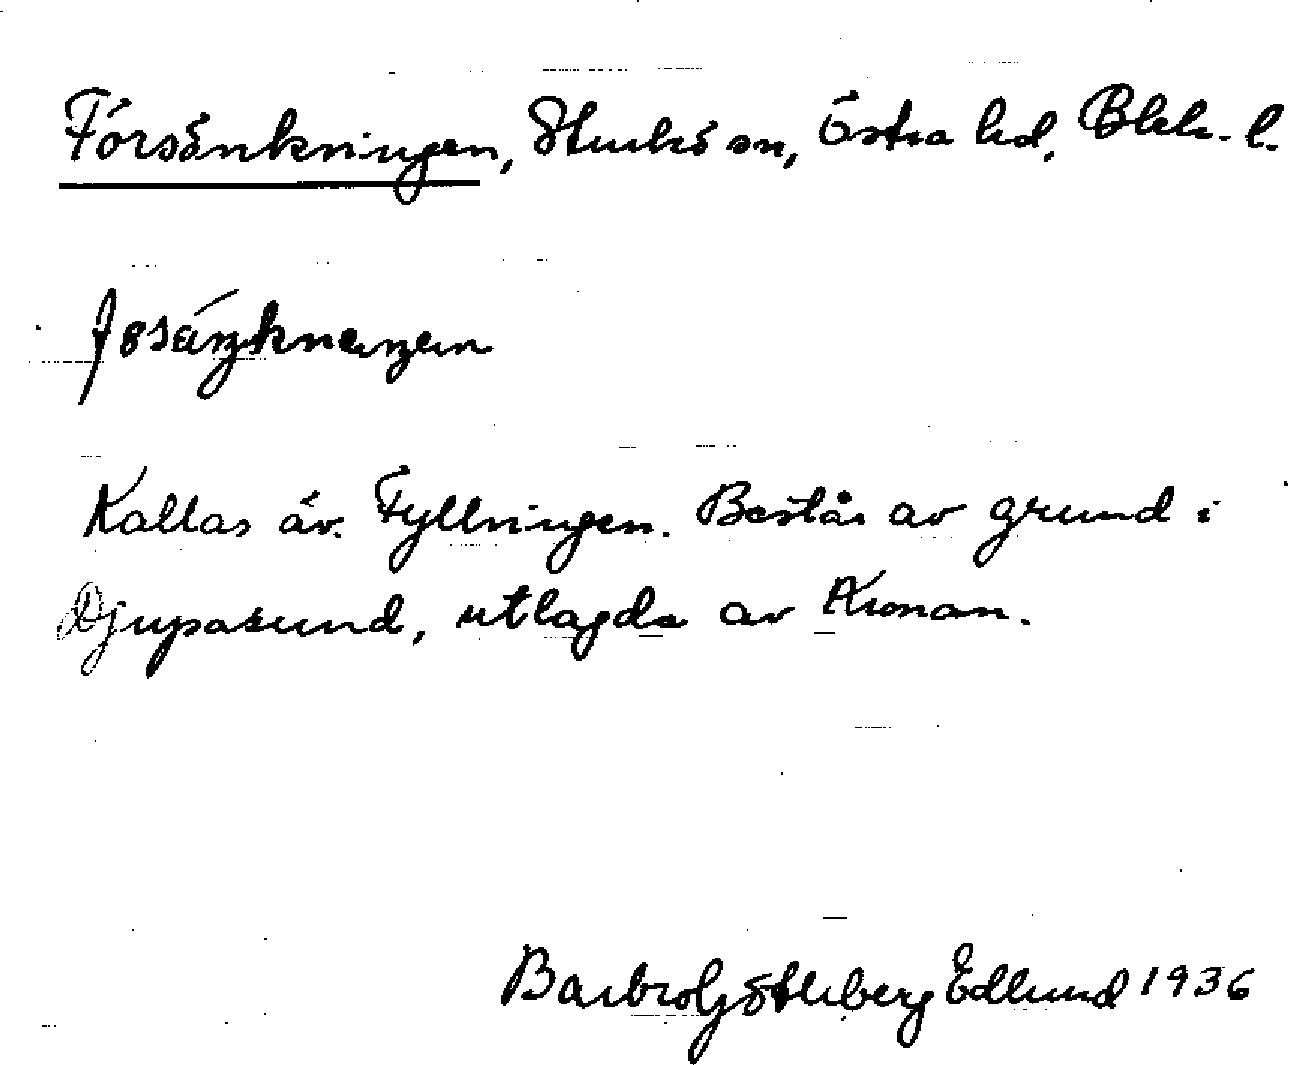 Försänkningen, Sturkö sn, Östra hd, Blek. l.
Kallas äv. Fyllningen. Består av grund i
Djupasund, utlagda av Kronan.
Barbro Götheberg Edlund 1936